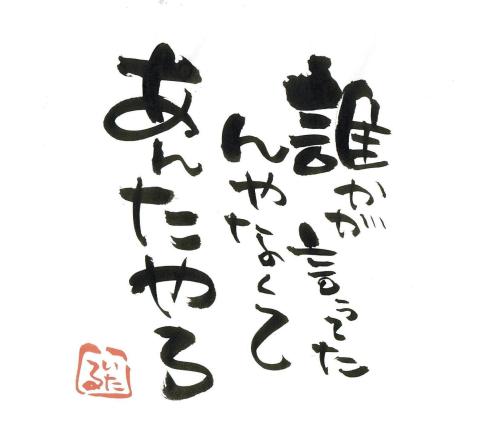 誰かが言ってた
んやなくて
あんたやろ
いた
る